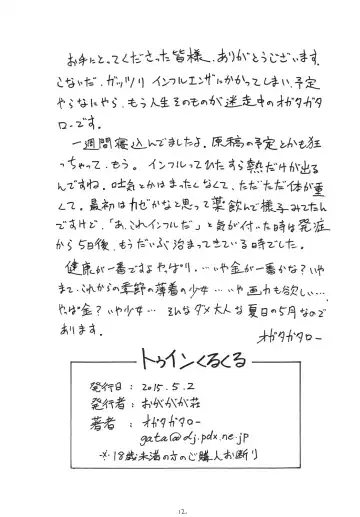 お手にとってくださった皆様、ありがとうございます。
こないだ、ガッツリ インフルエンザにかかってしまい、予定
やらなにやら、もう人生そのものが迷走中のオガタガタ
ローです。
一週間寝込んでましたよ。原稿の予定とかも狂
っちゃって、もう。インフルってひたすら熱だけが出る
んですね。吐気とかはまったくなくて、ただただ体が重
くて。最初はカゼかなと思って薬飲んで様子みてたん
ですけど、「あ、これインフルだ」と気が付いた時は発症
から5日後、もうだいぶ治まってきている時でした。
健康が一番ですよやっぱり。…いや金が一番かな？いや
まて、これからの季節の薄着の少女…いや画力も欲しい…
やっぱ金？いや少女… そんなダメ大人な夏日の5月なので
あります。
オガタガタロー
トゥインくるくる
発行日：2015.5.2
発行者：おががが荘
著者：オガタガタロー
gata@dj.pdx.ne.jp
※18歳未満の方のご購入お断り
12